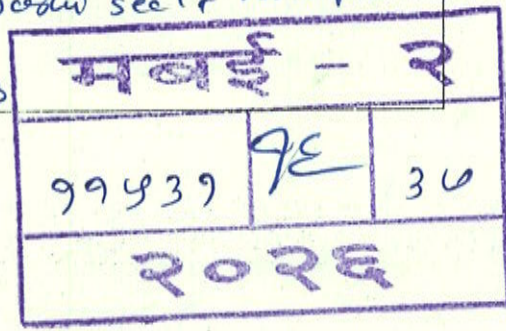 मबई - २
११५३१ १६ ३७
२०२६